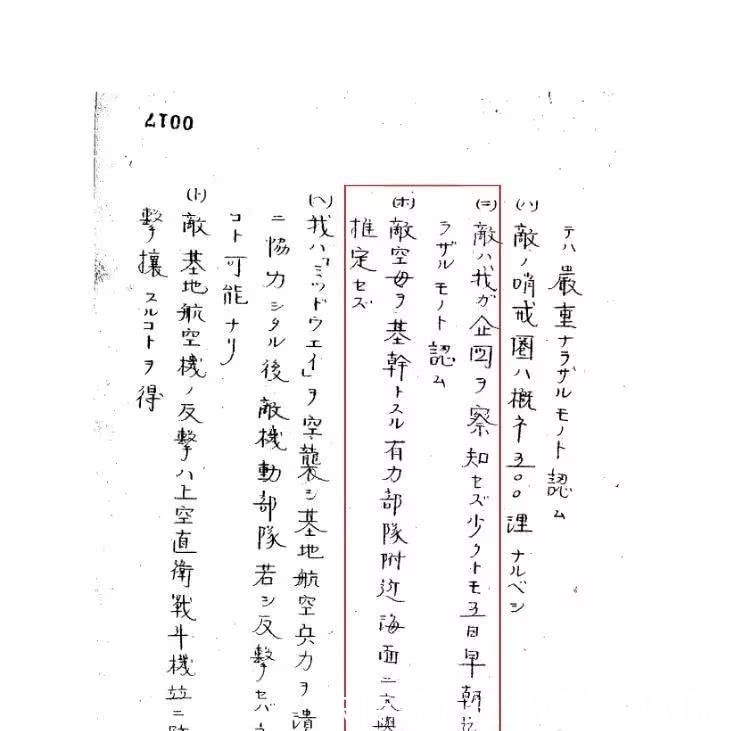 0017
テハ嚴重ナラザルモノト認ム
(ハ)敵ノ哨戒圏ハ概ネ五〇〇浬ナルベシ
(ニ)敵ハ我ガ企図ヲ察知セズ少クトモ五日早朝迄
ラザルモノト認ム
(ホ)敵空母ヲ基幹トスル有力部隊附近海面ニ
推定セズ
(ヘ)我ハ「ミッドウエイ」ヲ空襲シ基地航空兵力ヲ潰
ニ協力シタル後敵機動部隊若シ反撃セバ
コト可能ナリ
(ト)敵基地航空機ノ反撃ハ上空直衛戦斗機並ニ
撃攘スルコトヲ得